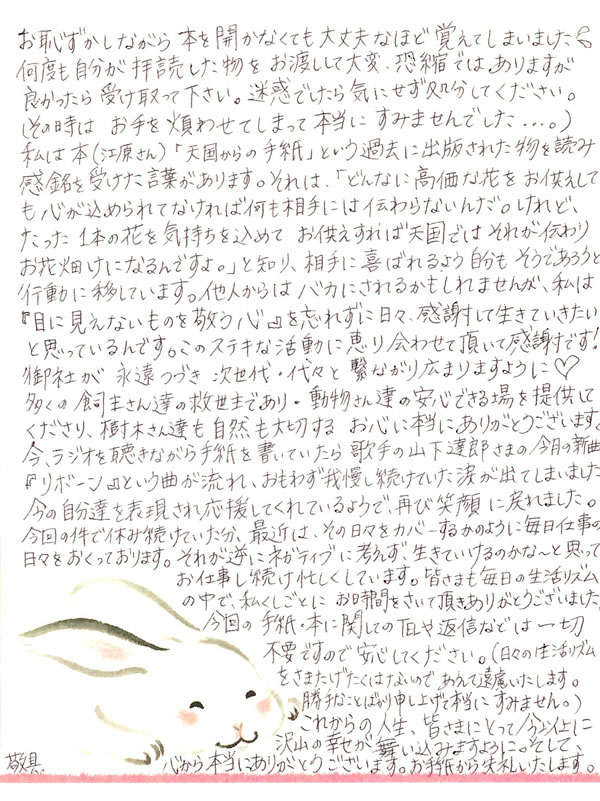 お恥ずかしながら 本を開かなくても大丈夫なほど 覚えてしまいました
何度も自分が 拝読した物を お渡しして大変 恐縮ではありますが
良かったら 受け取って下さい。迷惑でしたら気にせず処分してください。
(その時は お手を煩わせてしまって本当に すみませんでした….。)
私は本(江原さん)「天国からの手紙」という過去に出版された物を読み
感銘を受けた言葉があります。それは、「どんなに高価な花を お供えして
も心が込められてなければ何も相手には伝わらないんだ。けれど、
たった 1本の花を気持ちを込めて お供えすれば天国では それが伝わり
お花畑けになるんですよ。」と知り、相手に喜ばれるよう自分も そうであろうと
行動に移しています。他人からは バカにされるかもしれませんが、私は
『目に見えないものを敬う心』を忘れずに日々、感謝して生きていきたい
と思っているんです。このステキな活動に 恵り合わせて頂いて感謝です!
御社が 永遠つづき 次世代・代々と 繋ながり広まりますように♡
多くの 飼主さん達の救世主であり・動物さん達の安心できる場を提供して
くださり、樹木さん達も 自然も大切する お心に本当にありがとうございます。
今、ラジオを聴きながら手紙を書いていたら 歌手の山下達郎さまの今月の新曲
『リボーン』という曲が流れ、おもわず我慢し続けていた 涙が出てしまいました
今の自分達を表現され応援してくれているようで、再び笑顔に戻れました。
今回の件で休み続けていた分、最近は、その日々をカバーするかのように毎日仕事の
日々をおくっております。それが逆にネガティブに考えず 生きていけるのかな〜と思って
お仕事し続け忙しくしています。皆さまも毎日の生活リズム
の中で、私くしごとに お時間をさいて頂きありがとうございました
今回の 手紙・本に関しての 返信などは 一切
不要ですので安心してください。(日々の生活リズム
をさまたげたくはないので あえて遠慮いたします。
勝手なことばかり申し上げて本当に すみません。)
これからの人生、皆さまにとって今以上に
沢山の幸せが 舞い込みますように。そして、
心から本当にありがとうございます。お手紙から失礼いたします。
敬具.